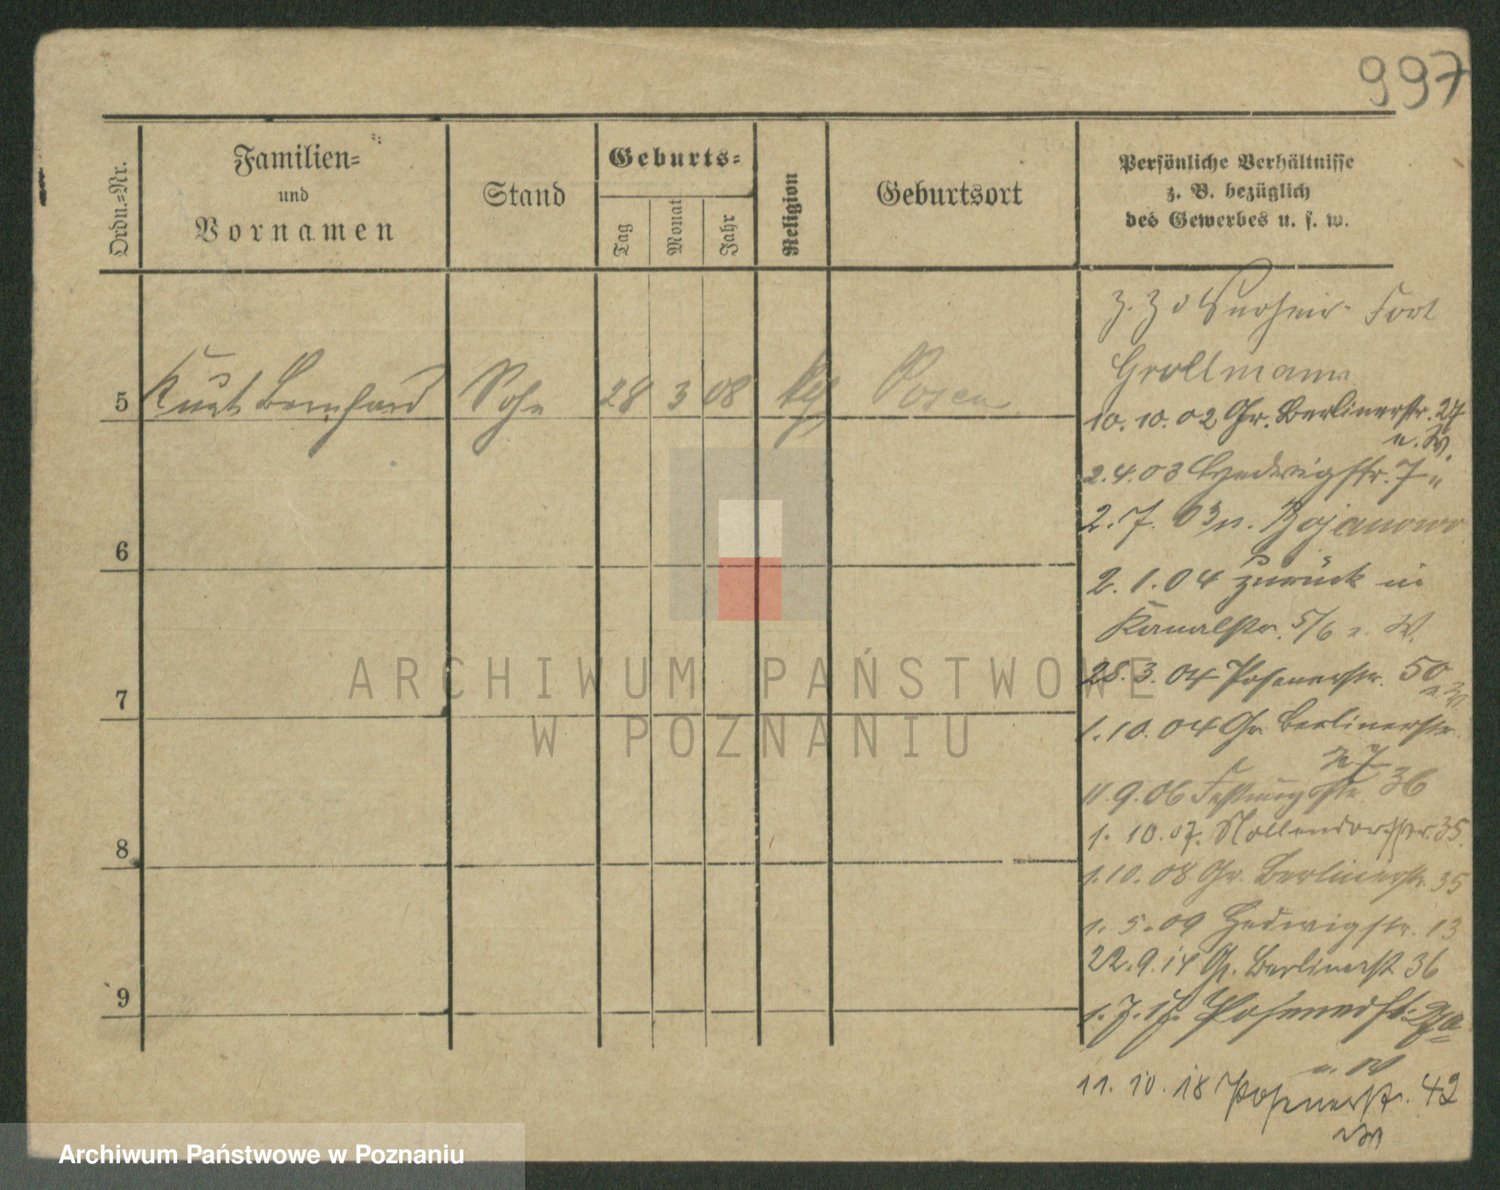 997
Ordn.=Nr.
Familien=
und
Vornamen
Stand
Geburts=
Tag
Monat
Jahr
Religion
Geburtsort
Persönliche Verhältnisse
z. B. bezüglich
des Gewerbes u. s. w.
5 Kurt Bernhard Sohn 28 3 08 Posen
6
7
8
9
z. Z. Fort
Grollmann
10.10.02 Gr. Berlinerstr. 27
u. W.
2.4.03 Hedwigstr. 7
2.7.03 n. Bojanowo
2.1.04 zurück in
Kanalstr. 5/6 u. W.
28.3.04 Posenerstr. 50
1.10.04 Gr. Berlinerstr.
27
11.9.06 Festungstr. 36
1.10.07. Nollendorfstr. 35.
1.10.08 Gr. Berlinerstr. 35
1.5.09 Hedwigstr. 13
22.9.14 Gr. Berlinerst 36
1.7.17. Posenerst.
u. W
11.10.18 Posenerstr. 42
ARCHIWUM PAŃSTWOWE
W POZNANIU
Archiwum Państwowe w Poznaniu